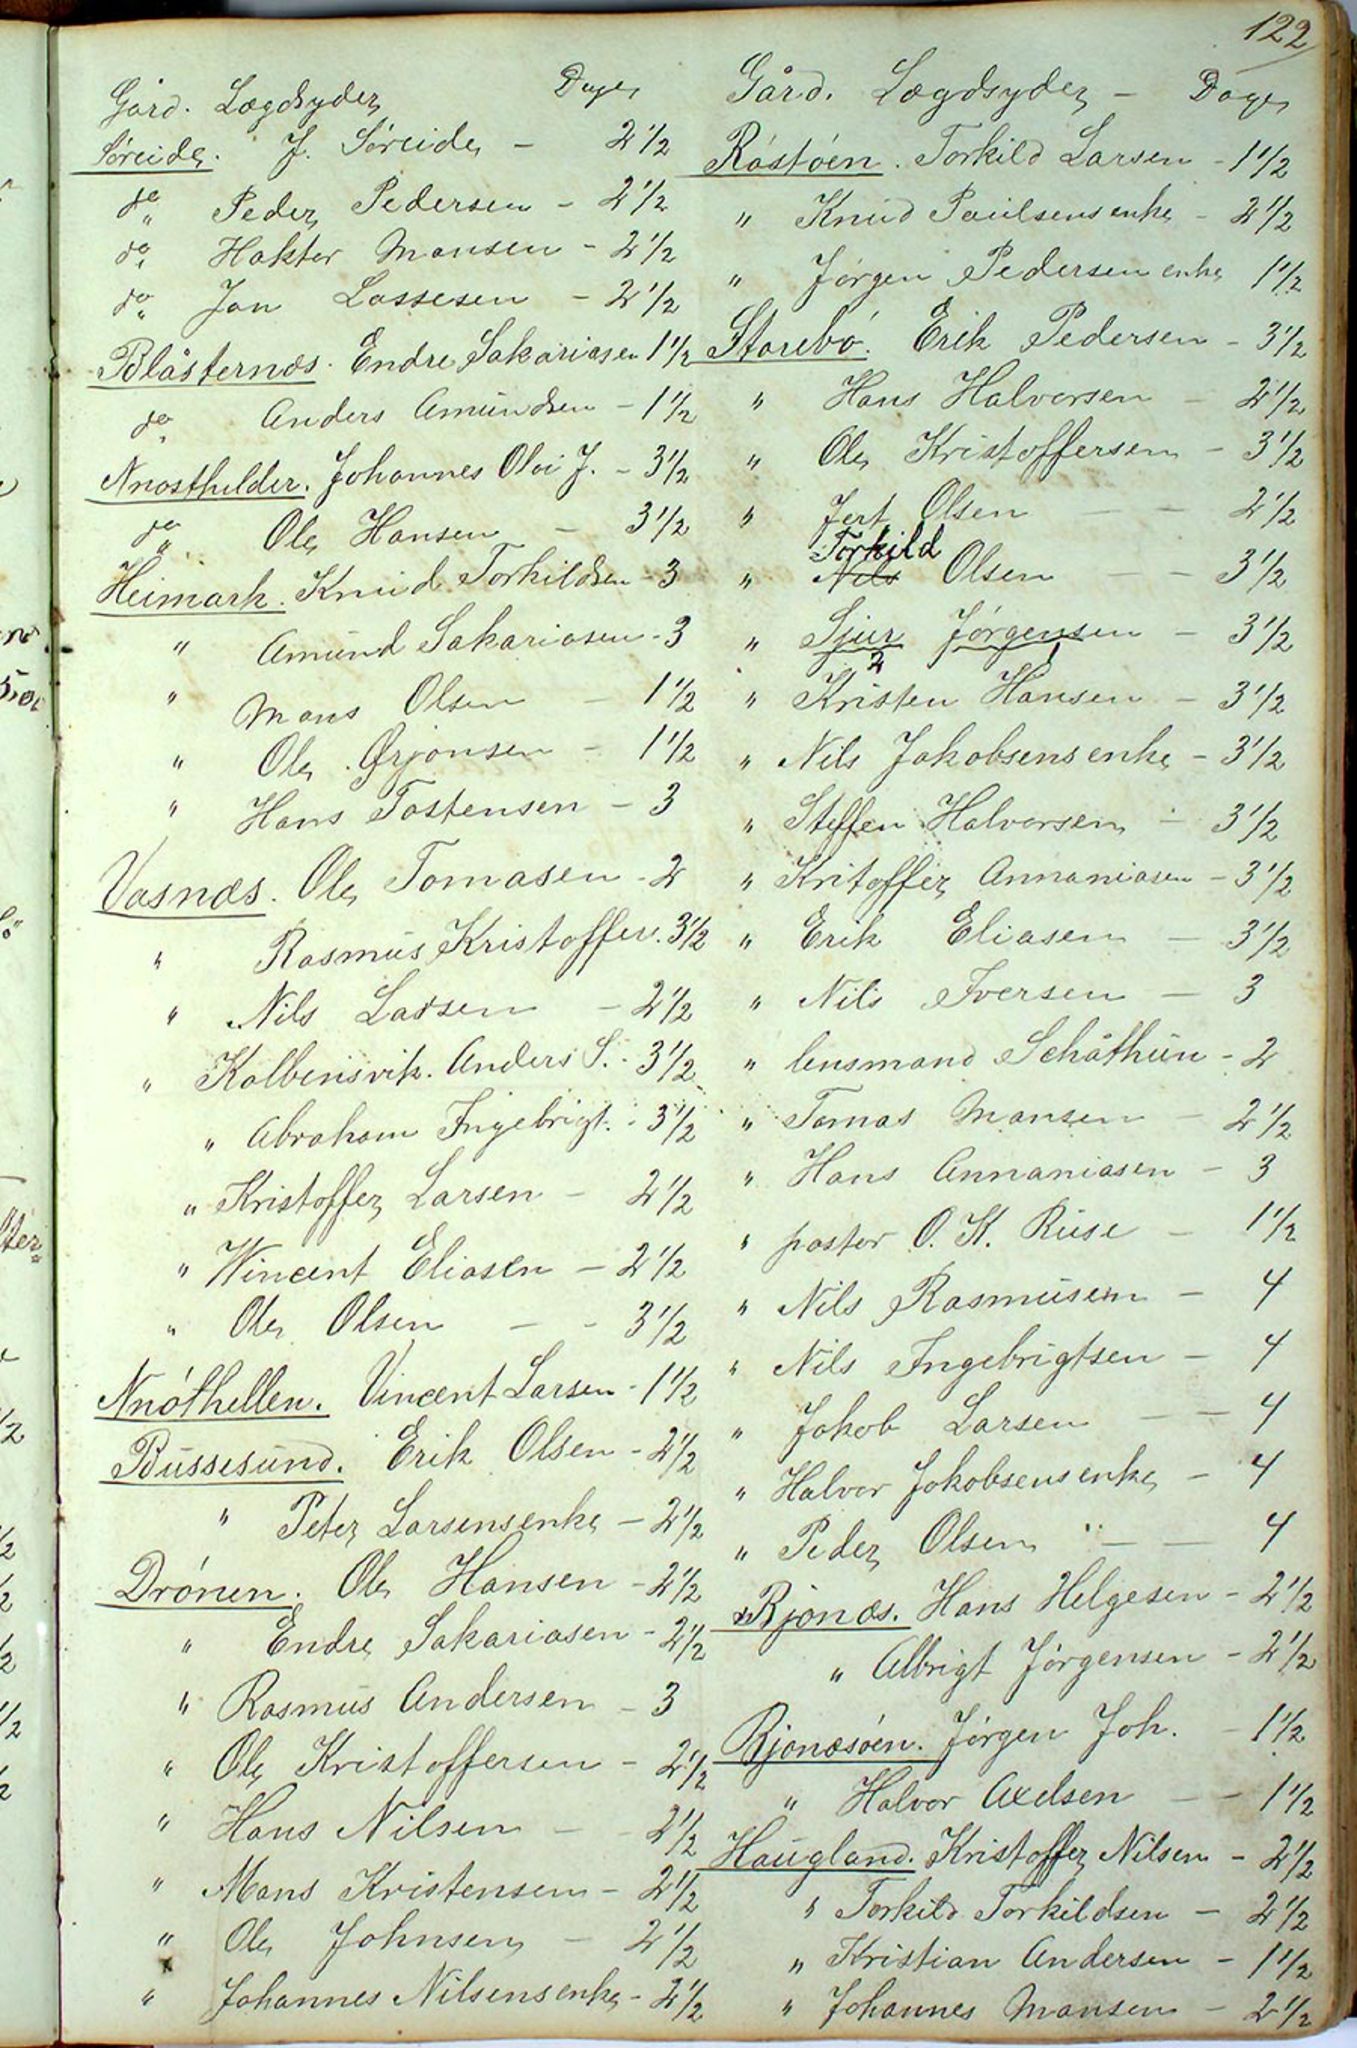 122
Gård. Lægdsyder Dage
Söreide. J. Söreide - 2 1/2
do " Peder Pedersen - 2 1/2
do " Haktor Mansen - 2 1/2
do " Jan Lassesen - 2 1/2
Blåsternæs. Endre Sakariasen 1 1/2
do " Anders Amundsen - 1 1/2
Nnosthilder. Johannes Olai J. - 3 1/2
do " Ole Hansen - 3 1/2
Heimark. Knud Torkildsen - 3
" Amund Sakariasen - 3
" Mans Olsen - 1 1/2
" Ole Ørjansen - 1 1/2
" Hans Tostensen - 3
Vasnæs. Ole Tomasen - 2
" Rasmus Kristoffer. 3 1/2
" Nils Larsen - 2 1/2
" Kolbensvik. Anders S. - 3 1/2
" Abraham Ingebrigt. - 3 1/2
" Kristoffer Larsen - 2 1/2
" Wincent Eliasen - 2 1/2
" Ole Olsen - - 3 1/2
Nnóthellen. Vincent Larsen - 1 1/2
Bussesund. Erik Olsen - 2 1/2
" Peter Larsens enke - 2 1/2
Drónen. Ole Hansen - 2 1/2
" Endre Sakariasen - 2 1/2
" Rasmus Andersen - 3
" Ole Kristoffersen - 2 1/2
" Hans Nilsen - - 2 1/2
" Mans Kristensen - 2 1/2
" Ole Johnsen - 2 1/2
" Johannes Nilsens enke - 2 1/2
Gård. Lægdsyder - Dage
Róstóen. Torkild Larsen - 1 1/2
" Knud Paulsens enke - 2 1/2
" Jórgen Pedersen enke 1 1/2
Storebó. Erik Pedersen - 3 1/2
" Hans Halvorsen - 2 1/2
" Ole Kristoffersen - 3 1/2
" Jert Olsen - - 2 1/2
Torkild
" Nils Olsen - - 3 1/2
" Sjur Jórgensen - 3 1/2
2
" Kristen Hansen - 3 1/2
" Nils Jakobsens enke - 3 1/2
" Steffen Halvorsen - 3 1/2
" Kritoffer Annaniasen - 3 1/2
" Erik Eliasen - 3 1/2
" Nils Iversen - 3
" lensmand Schåthun - 2
" Tomas Mansen - 2 1/2
" Hans Annaniasen - 3
" pastor O. K. Ruse - 1 1/2
" Nils Rasmusen - 4
" Nils Ingebrigtsen - 4
" Jakob Larsen - - 4
" Halvor Jokobsens enke - 4
" Peder Olsen - - 4
Bjonæs. Hans Helgesen - 2 1/2
" Albrigt Jórgensen - 2 1/2
Bjonæsóen. Jórgen Joh. - 1 1/2
" Halvor Axelsen - - 1 1/2
Haugland. Kristoffer Nilsen - 2 1/2
" Torkild Torkildsen - 2 1/2
" Kristian Andersen - 1 1/2
" Johannes Mansen - 2 1/2